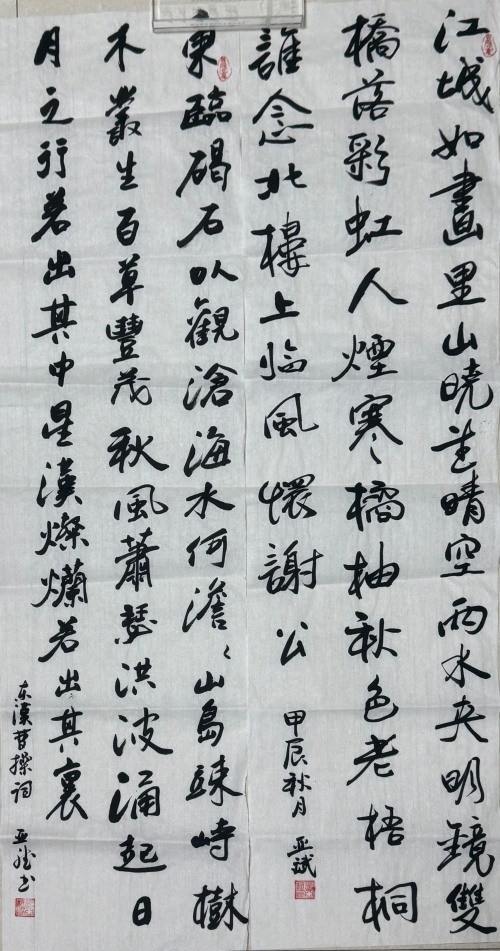 江城如畫里山曉望晴空兩水夾明鏡雙
橋落彩虹人煙寒橘柚秋色老梧桐
誰念北樓上临風懷謝公
甲辰秋月 亚斌
東臨碣石以觀滄海水何澹〻山島竦峙樹
木叢生百草豐茂秋風蕭瑟洪波涌起日
月之行若出其中星漢燦爛若出其裏
东漢曹操詞 亚斌书